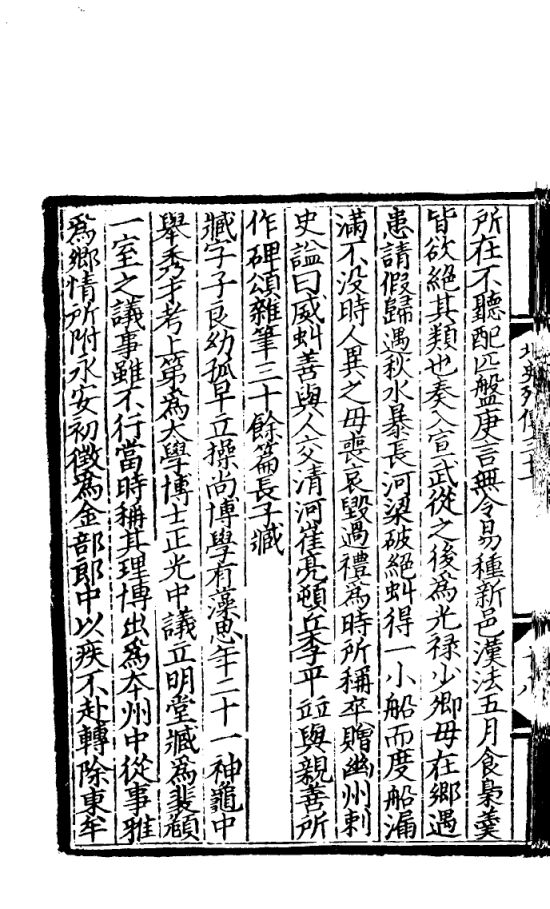 所在不聽配匹盤庚言無令易種新邑漢法五月食梟羹
皆欲絶其類也奏入宣武從之後爲光禄少卿母在鄉遇
患請假歸遇秋水暴長河梁破絶虬得一小船而度船漏
滿不没時人異之母喪哀毀過禮爲時所稱卒贈幽州刺
史謚曰威虬善與人交清河崔亮頓丘李平並與親善所
作碑頌雜筆三十餘篇長子臧
臧字子良幼孤早立操尚博學有藻思年二十一神龜中
舉秀才考上第爲太學博士正光中議立明堂臧爲裴頠
一室之議事雖不行當時稱其理博出爲本州中從事雅
爲鄉情所附永安初徵爲金部郎中以疾不赴轉除東牟